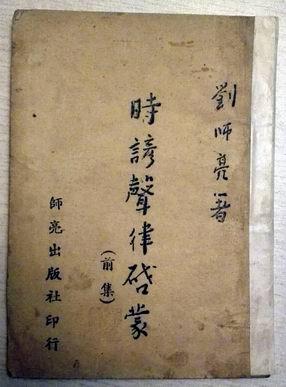 劉師亮著
時諺聲律啓蒙
(前集)
師亮出版社印行